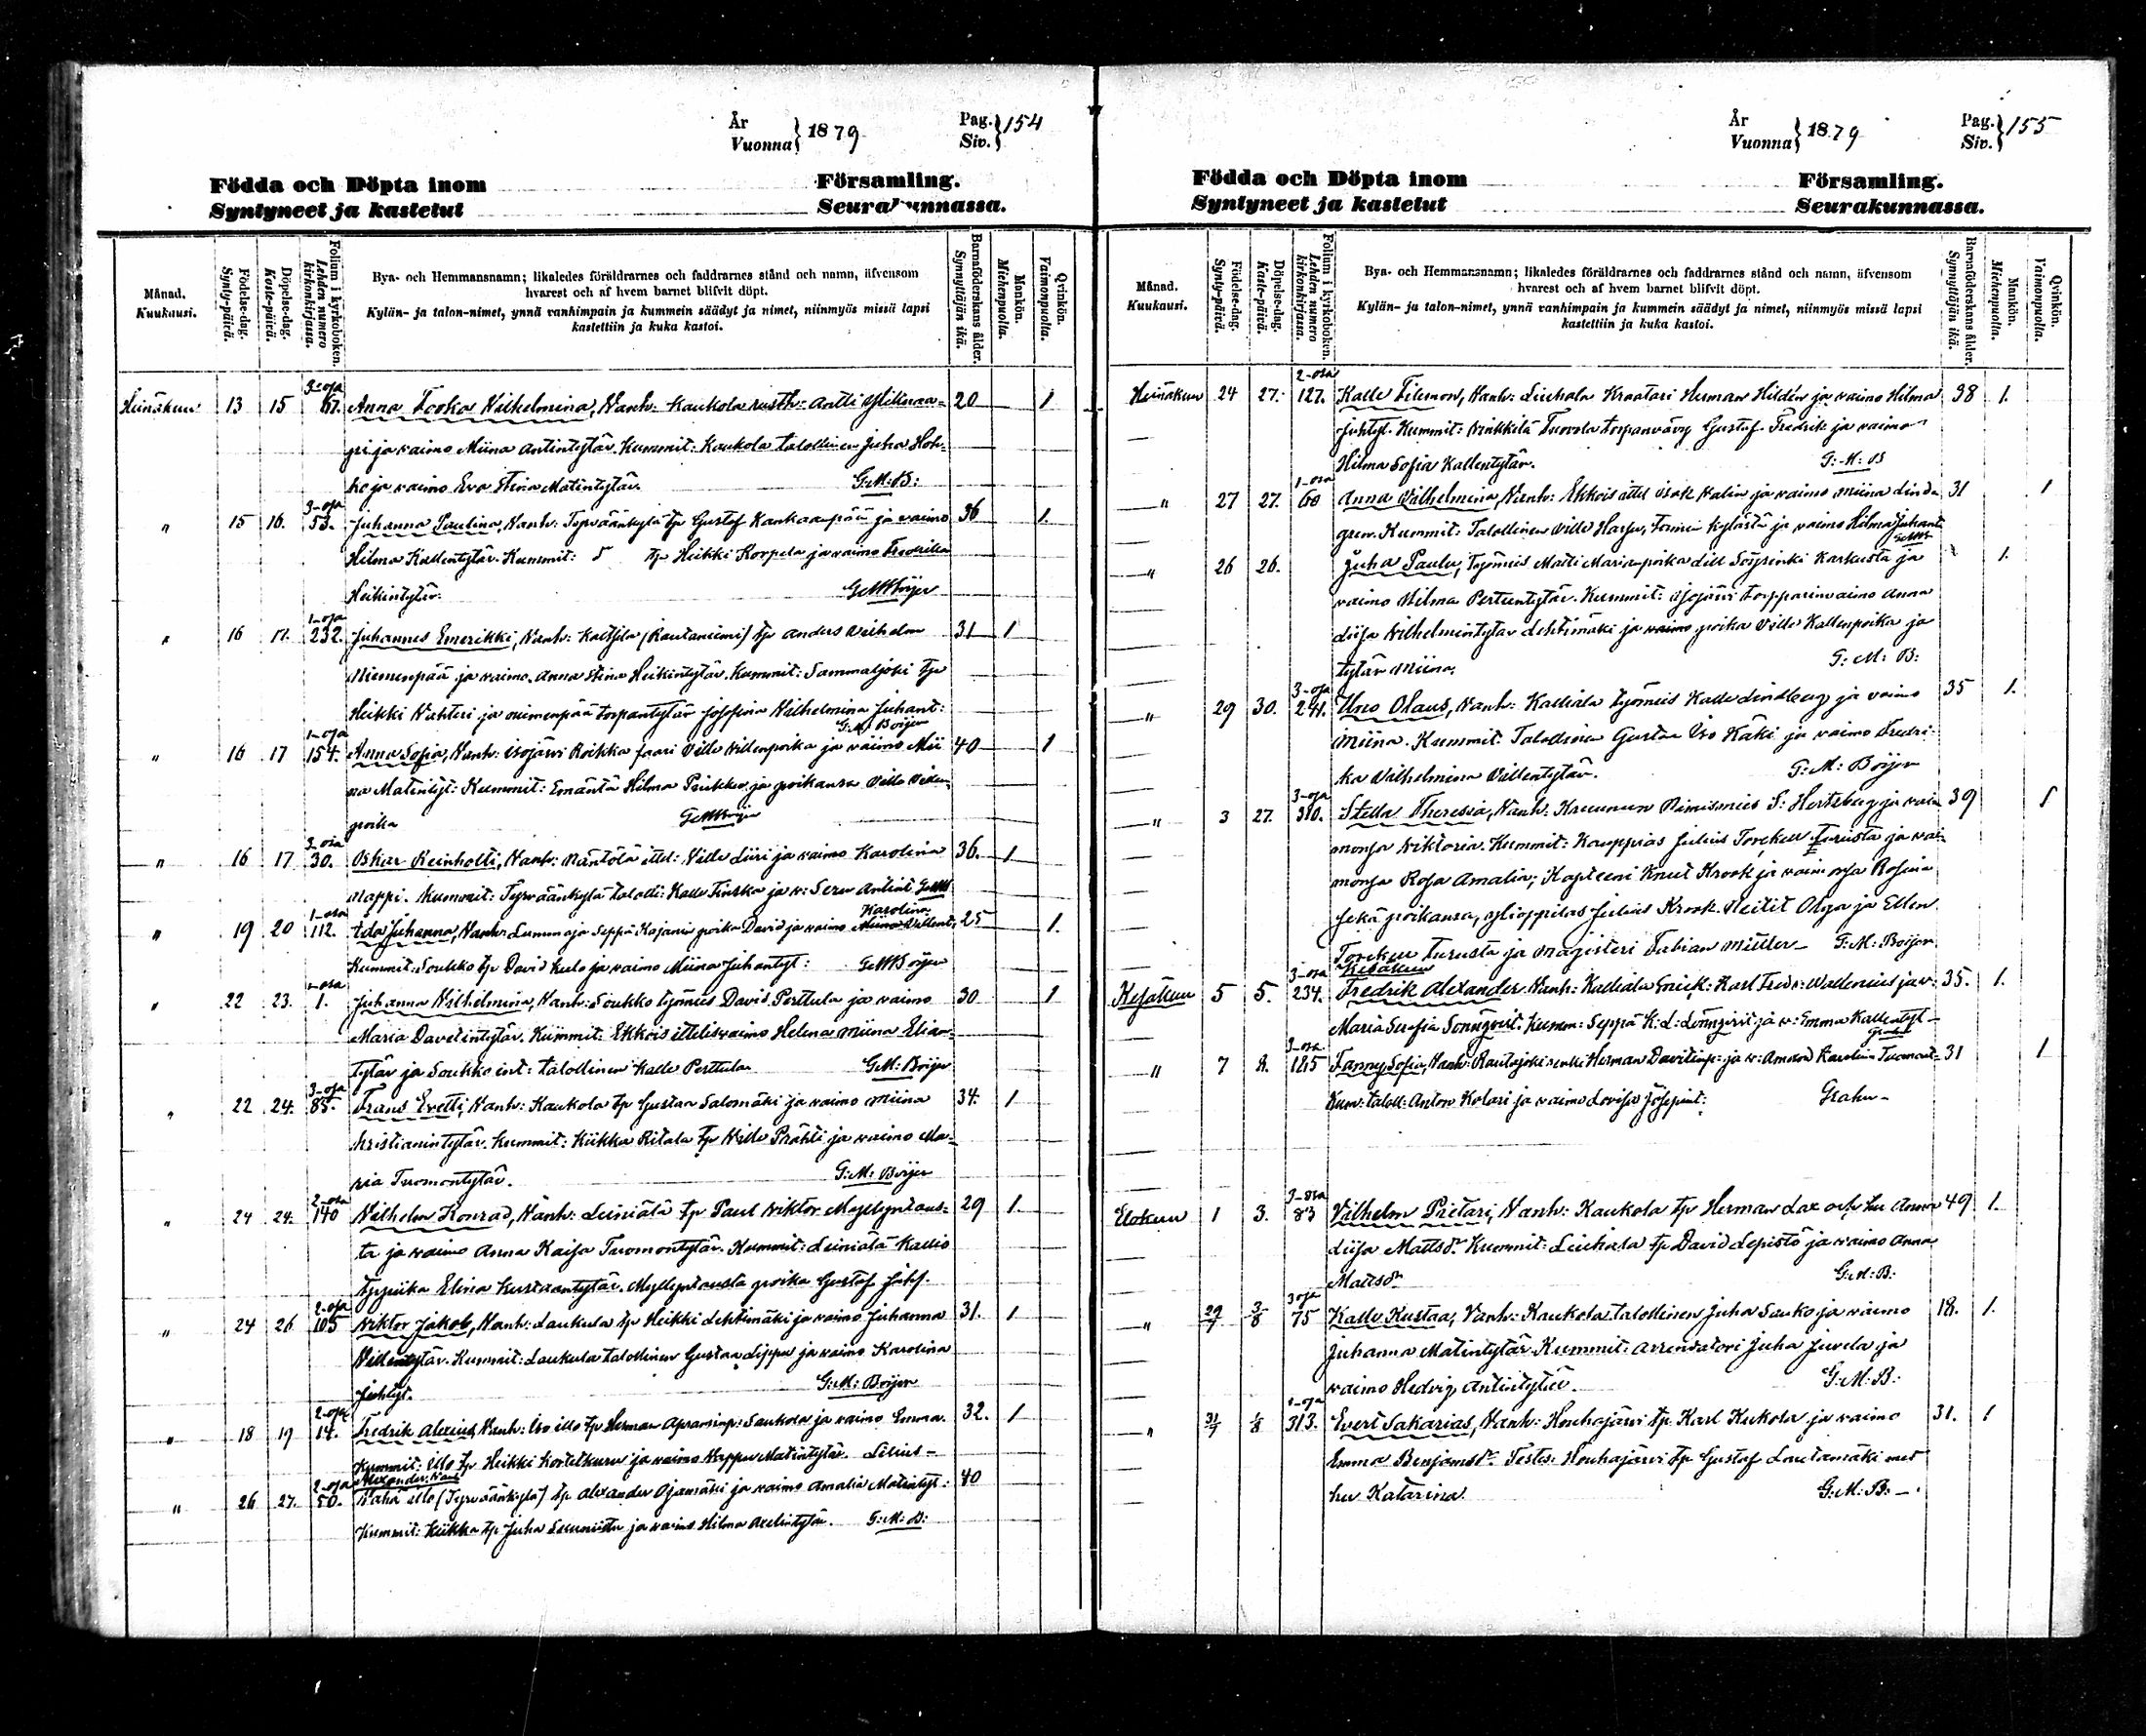 År
Vuonna } 1879
Pag.
Siv. } 154
Födda och Döpta inom Församling.
Syntyneet ja kastetut Seurakunnassa.
Månad.
Kuukausi.
Födelse-dag.
Synty-päivä.
Döpelse-dag.
Kaste-päivä.
Folium i kyrkoboken.
Lehden numero
kirkonkirjassa.
Bya- och Hemmansnamn; likaledes föräldrarnes och faddrarnes stånd och namn, äfvensom
hvarest och af hvem barnet blifvit döpt.
Kylän- ja talon-nimet, ynnä vanhimpain ja kummein säädyt ja nimet, niinmyös missä lapsi
kastettiin ja kuka kastoi.
Barnaföderskans ålder.
Synnyttäjän ikä.
Mankön.
Miehenpuolia.
Qvinkön.
Vaimonpuolia.
3-osa
Heinäkuu 13 15 Anna Wilhelmina, Vanh: Kaukola rusth: Antti 20 1
ja vaimo Miina Antintytär. Kummit: Kaukola talollinen Juha
ja vaimo Eva Stina Matintytär. G:M:B:
3-osa
" 15 16. 53. Juhanna Paulina, Vanh: Tyrväänkylä tp Gustaf Kankaanpää ja vaimo 36 1.
Hilma Kallentytär. Kummit: tp Heikki Korpela ja vaimo Fredrika
Heikintytär. G:M:Boijer
1-osa
" 16 17. 232. Johannes Emerikki, Vanh: (Rautaniemi) tp Anders Wilhelm 31 1
Niemenpää ja vaimo Anna Stina Heikintytär. Kummit: Sammaljoki tp
Heikki ja Niemenpää torpantytär Josefina Wilhelmina Juhant:
G:M: Boijer
1-osa
" 16 17 154. Anna Sofia, Vanh: Isojärvi Roikka faari Ville Villenpoika ja vaimo Mii 40 1
na Matintyt: Kummit: Emäntä Hilma ja poikansa Ville Villen
poika G:M:Boijer
3-osa
" 16 17 30. Oskar Reinholti, Vanh: Mäntölä ittel: Ville Liiri ja vaimo Karolina 36. 1
Nappi. Kummit: Tyrväänkylä talolli: Kalle ja v: Antint G:M:B
1-osa
Karolina
" 19 20 112. Ida Juhanna, Vanh: Lummaja Seppä poika David ja vaimo Villent. 25 1.
Kummit: Soukko tp David ja vaimo Miina Juhantyt: G:M:Boijer
1-osa
" 22 23. 1. Juhanna Wilhelmina, Vanh: Soukko työmies David Perttula ja vaimo 30 1
Maria Davetintytär. Kummit: Ekkois ittelisvaimo Helena Miina Elian
tytär ja Soukko int: talollinen Kalle Perttula G:M: Boijer
3-osa
" 22 24. 85. Frans Evetti, Vanh: Kaukola tp Gustaa Salomäki ja vaimo Miina 34. 1
Kristianintytär. Kummit: Kiikka Ritala tp Ville Prähti ja vaimo Ma-
ria Tuomontytär. G:M: Boijer
2-osa
" 24 24. 140 Wilhelm Konrad, Vanh: Leiniälä tp Paul Wiktor Myllyntaus- 29 1.
ta ja vaimo Anna Kaisa Tuomontytär. Kummit: Leiniälä Kallio
Elina Kustaantytär. Myllyntausta poika Gustaf
2-osa
" 24 26 105 Wiktor Jakob, Vanh: Laukula tp Heikki Lehtimäki ja vaimo Juhanna 31. 1
Villentytär. Kummit: Laukula talollinen Gustaa Lippu ja vaimo Karolina
Juhtyt. G:M: Boijer
2-osa
" 18 19 14. Fredrik Alexius, Vanh: Iso illo tp Herman Apramimp: Saukola ja vaimo Emma. 32. 1
Kummit: Illo tp Heikki Kortetkuru ja vaimo Matintytär. Lilius-
2-osa Alexander Vanh:
" 26 27. 50. Vähä illo (Tyrväänkylä) tp Alexander Ojamäki ja vaimo Amalia Matintyt: 40
Kummit: Kiikka tp Juha ja vaimo Hilma Axelintytär. G:M:B:
År
Vuonna } 1879
Pag.
Siv. } 155
Födda och Döpta inom Församling.
Syntyneet ja kastetut Seurakunnassa.
Månad.
Kuukausi.
Födelse-dag.
Synty-päivä.
Döpelse-dag.
Kaste-päivä.
Folium i kyrkoboken.
Lehden numero
kirkonkirjassa.
Bya- och Hemmansnamn; likaledes föräldrarnes och faddrarnes stånd och namn, äfvensom
hvarest och af hvem barnet blifvit döpt.
Kylän- ja talon-nimet, ynnä vanhimpain ja kummein säädyt ja nimet, niinmyös missä lapsi
kastettiin ja kuka kastoi.
Barnaföderskans ålder.
Synnyttäjän ikä.
Mankön.
Miehenpuolia.
Qvinkön.
Vaimonpuolia.
2-osa
Heinäkuu 24 27. 127. Kalle Filemon, Vanh: Liuhala Kraatari Herman Hildén ja vaimo Hilma 38 1.
Juhtyt. Kummit: Vinkkilä Tuorla torpanvävy Gustaf Fredrik ja vaimo
Hilma Sofia Kallentytär. G:M:B
1-osa
" 27 27. 60 Anna Wilhelmina, Vanh: Ekkois ittel Isak Valin ja vaimo Miina Lind 31 1
gren. Kummit: Talollinen Ville Harju, kylästä ja vaimo Hilma Juhant.
" 26 26. Juha Paulu, Työmies Matti Marianpoika Karkusta ja 1.
vaimo Hilma Pertuntytär. Kummit: Isojärvi torpparinvaimo Anna
Liisa Wilhelmintytär Lehtimäki ja poika Ville Kallenpoika ja
tytär Miina. G:M:B:
3-osa
" 29 30. 241. Uno Olaus, Vanh: Kalliala työmies Kalle Lindberg ja vaimo 35 1.
Miina. Kummit: Talollinen Gustaa Iso Käki ja vaimo Fredri-
ka Wilhelmina Villentytär. G:M: Boijer
3-osa
" 3 27. 310. Stella Theresia, Vanh: Kruunun Nimismies S: Hertzberg ja vai 39 1
monsa Viktoria. Kummit: Kauppias Julius Torckell Turusta ja vai-
monsa Rosa Amalia; Kapteeni Knut Krook ja vaimonsa Rosina
sekä poikansa, ylioppilas Julius Krook. Neitit Olga ja Ellen
Torckell Turusta ja Magisteri Fabian Müller - G:M: Boijer
3-osa Kesäkuu
Kesäkuu 5 5. 234. Fredrik Alexander Vanh: Kalliala Karl Fredr: Wallenius ja v: 35. 1.
Maria Serafia Sönnqvist. Kumm: Seppä K: L: Lönnqvist ja v: Emma Kallentyt-
3-osa
" 7 8. 185 Fanny Sofia, Vanh: Rautajoki renki Herman Davitinp: ja v: Amanda Karolina Tuomont- 31 1
Kum: talol: Anton Kolari ja vaimo Lovisa Josepint: Grahn-
3-osa
Elokuu 1 3. 83 Vilhelm Pietari, Vanh: Kaukola tp Herman Lax och hu Anna 49 1.
Liisa Mattsdr. Kummit: Liuhala tp David Lepistö ja vaimo Anna
Mattsdr G:M:B:
3 osa
" 29/7 3/8 75 Kalle Kustaa, Vanh: Kaukola talollinen Juha Sauko ja vaimo 18. 1.
Juhanna Matintytär. Kummit: Arrendatori Juha Juvela ja
vaimo Hedvig Antintytär. G:M:B:
1-osa
" 31/7 1/8 313. Evert Sakarias, Vanh: Houhajärvi tp Karl Kukola ja vaimo 31. 1
Emma Benjamsdr. Testes: Houhajärvi tp Gustaf Loutamäki med
hu Katarina. G:M:B:-